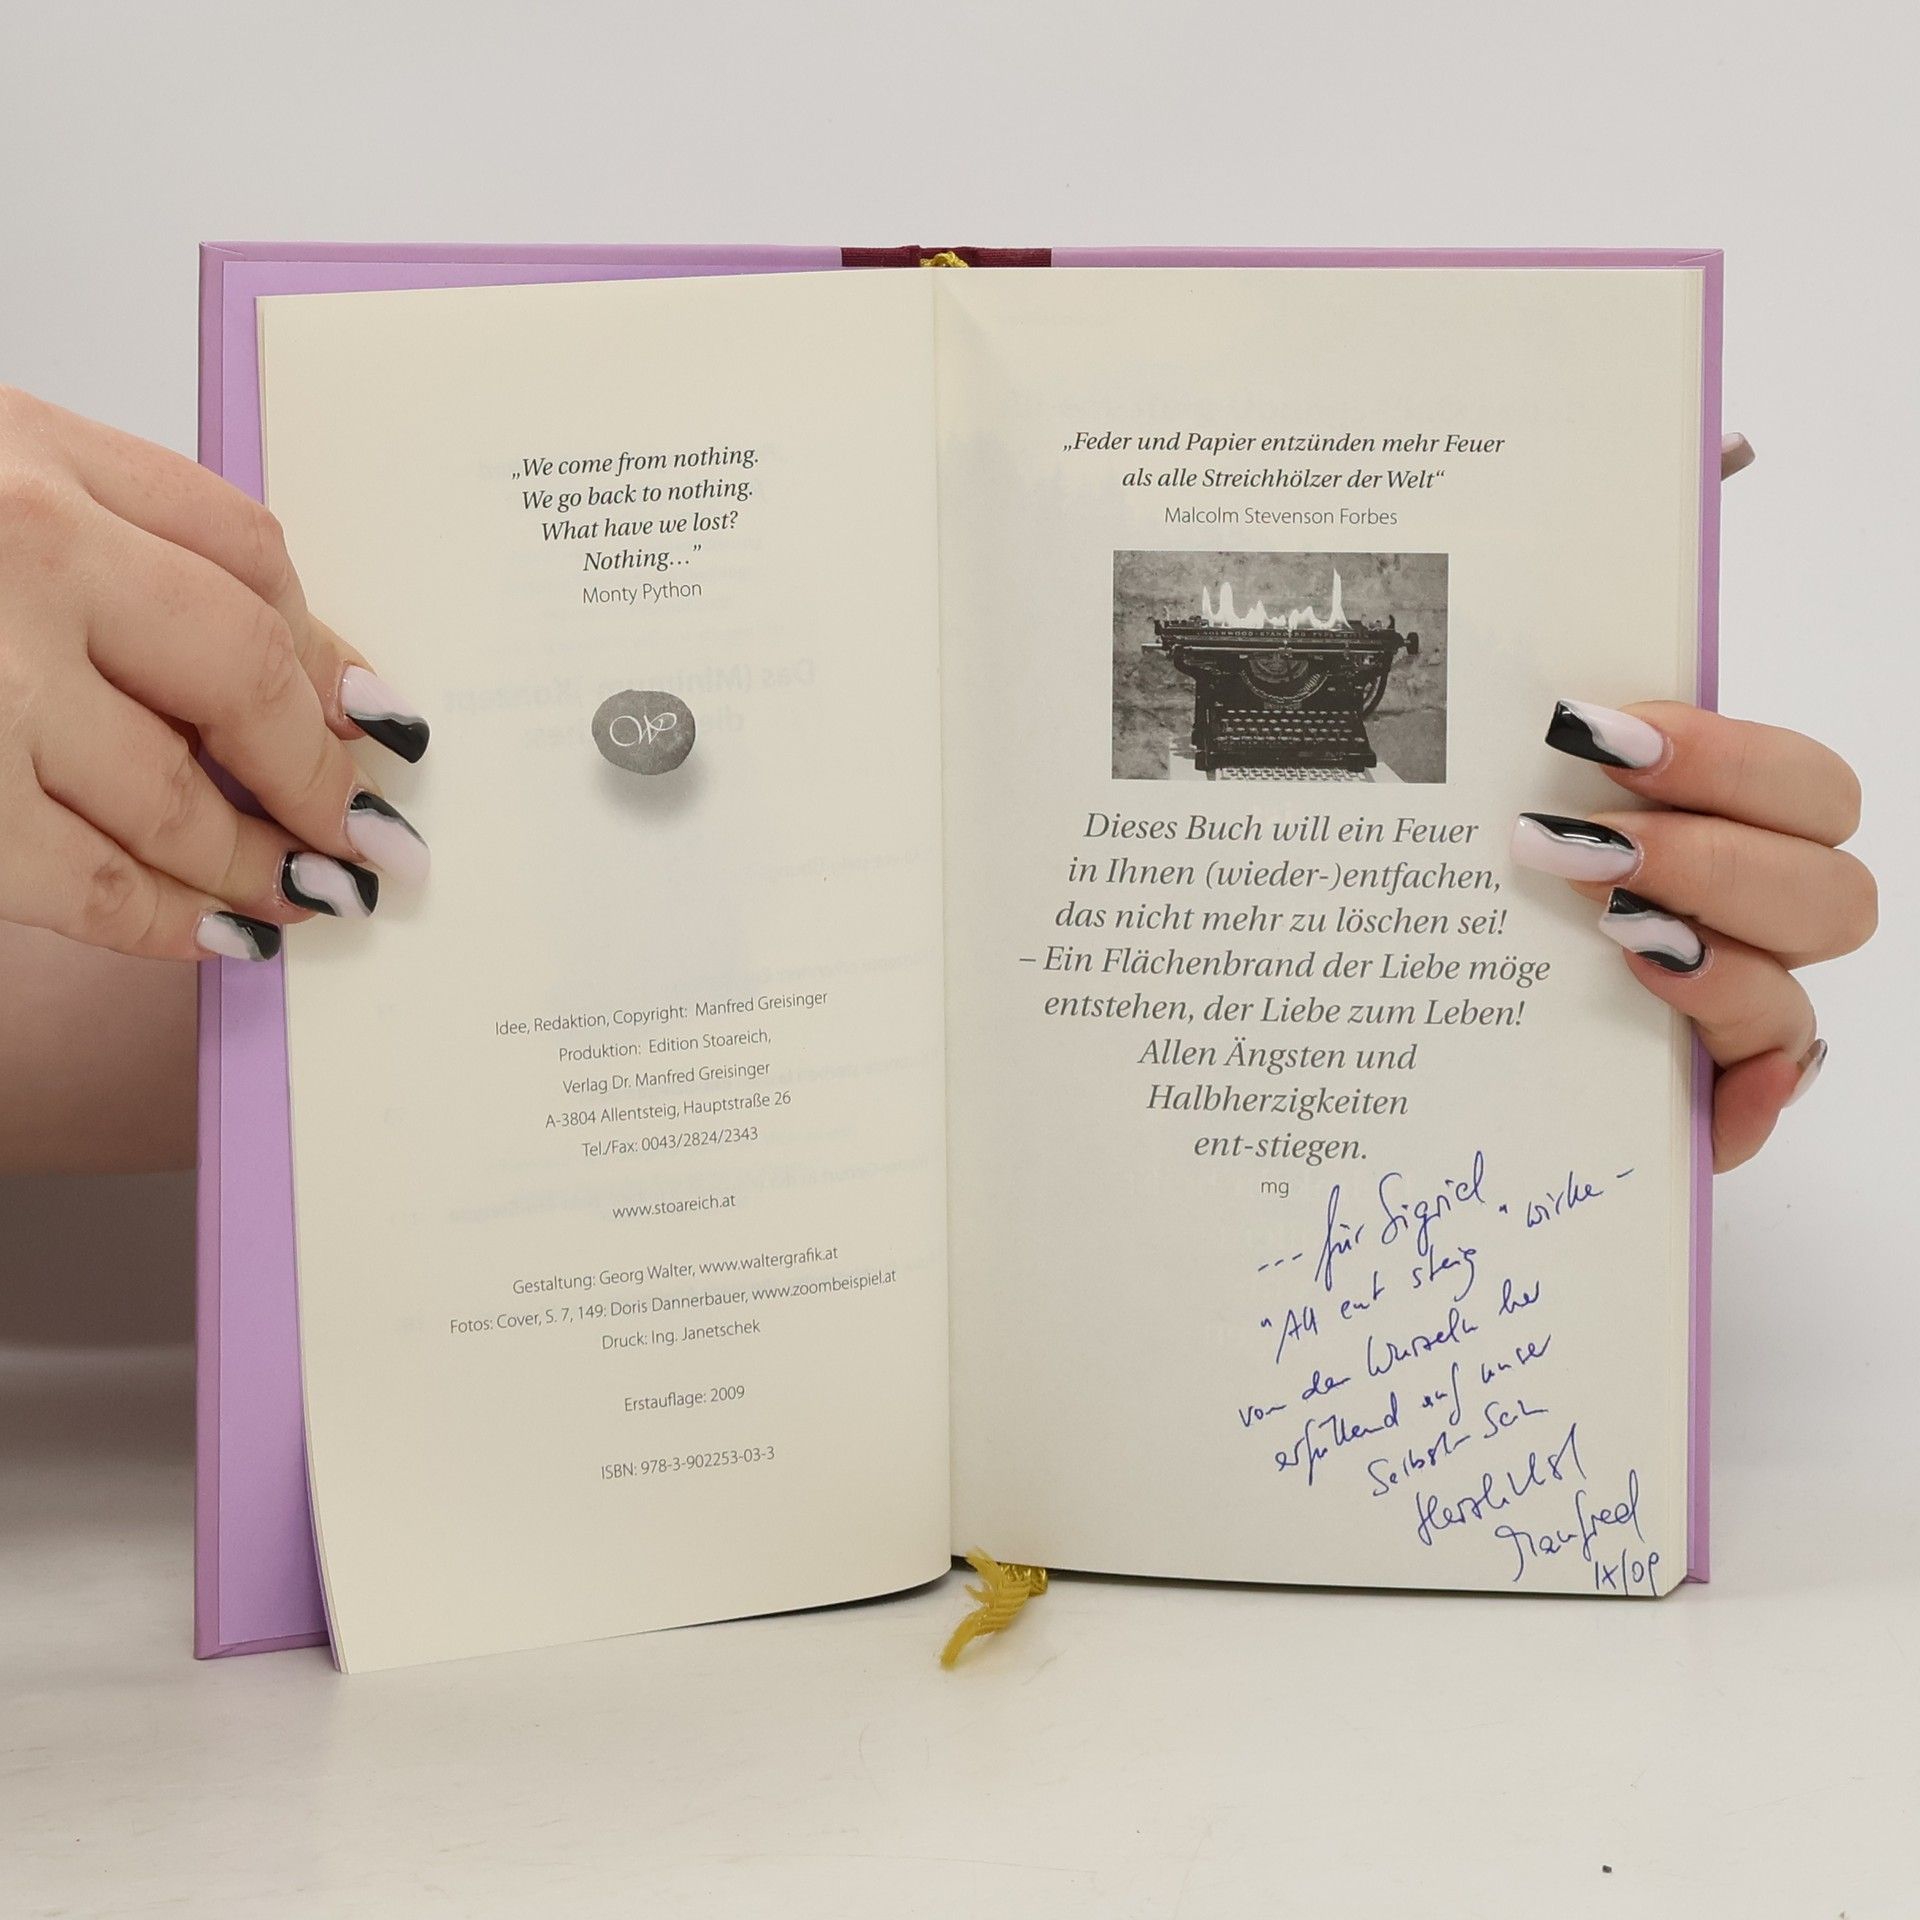 „We come from nothing.
We go back to nothing.
What have we lost?
Nothing…”
Monty Python
Idee, Redaktion, Copyright: Manfred Greisinger
Produktion: Edition Stoareich,
Verlag Dr. Manfred Greisinger
A-3804 Allentsteig, Hauptstraße 26
Tel./Fax: 0043/2824/2343
www.stoareich.at
Gestaltung: Georg Walter, www.waltergrafik.at
Fotos: Cover, S. 7, 149: Doris Dannerbauer, www.zoombeispiel.at
Druck: Ing. Janetschek
Erstauflage: 2009
ISBN: 978-3-902253-03-3
„Feder und Papier entzünden mehr Feuer
als alle Streichhölzer der Welt“
Malcolm Stevenson Forbes
UNDERWOOD STANDARD TYPEWRITER
Dieses Buch will ein Feuer
in Ihnen (wieder-)entfachen,
das nicht mehr zu löschen sei!
– Ein Flächenbrand der Liebe möge
entstehen, der Liebe zum Leben!
Allen Ängsten und
Halbherzigkeiten
ent-stiegen.
mg
--- für Sigrid
"All ent steig" wirke –
von den Wurzeln her
erfüllend auf unser
Selbst-Sein
Herzlichst
Manfred
IX/09